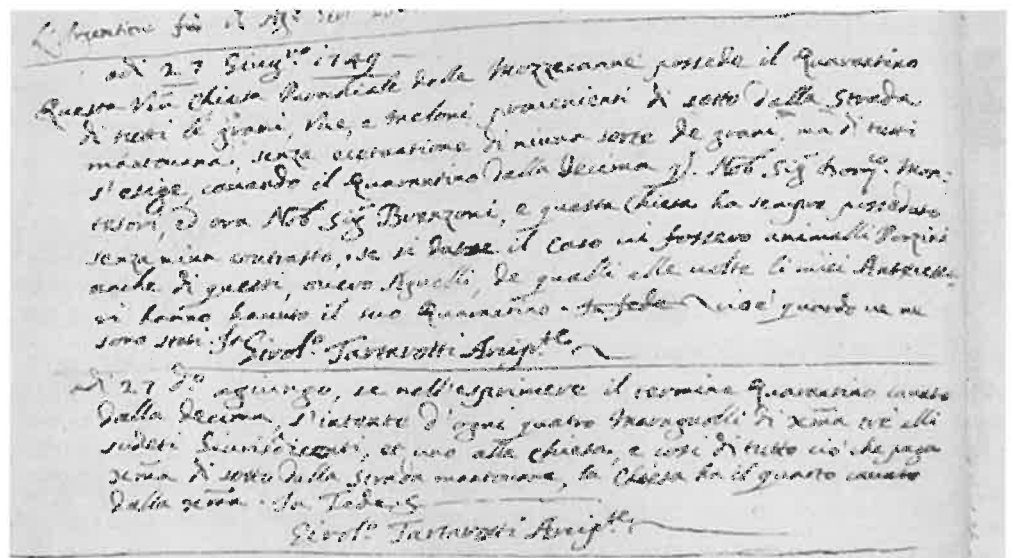 adi 27 Giug.no 1749
Questa Ven. Chiesa Parochiale delle Mozzecanne possede il Quarantino
di tutti le grani, Uve, e meloni provenienti di sotto dalla Strada
mantovana, senza eccetuatione di niuna sorte de grani, ma di tutti
s'esige, cavando il Quarantino dalla Decima Nob. Sig. Mon-
tesori, ed ora Nob. Sig. Brenzoni, e questa Chiesa ha sempre posseduto
senza niun contrasto, se si dasse il caso vi fossero animalli Porzini
anche di questi, overo Agnelli, de qualli alle volte li miei Antecesso-
ri hanno havuto il suo Quarantino. In fede cioè quando ve ne
sono stati.
Girol.o Tartarotti Arcip.te
adi 27 d.o agiungo, se nell'esprimere il termine Quarantino cavato
dalla Decima, s'intente d'ogni quatro di xma tre alli
sudeti Giurisdicenti, et uno alla Chiesa, e cosi di tutto ciò che paga
xma di sotto dalla Strada mantovana, la Chiesa ha il quarto cavato
dalla xma. In Fede
Girol.o Tartarotti Arcip.te